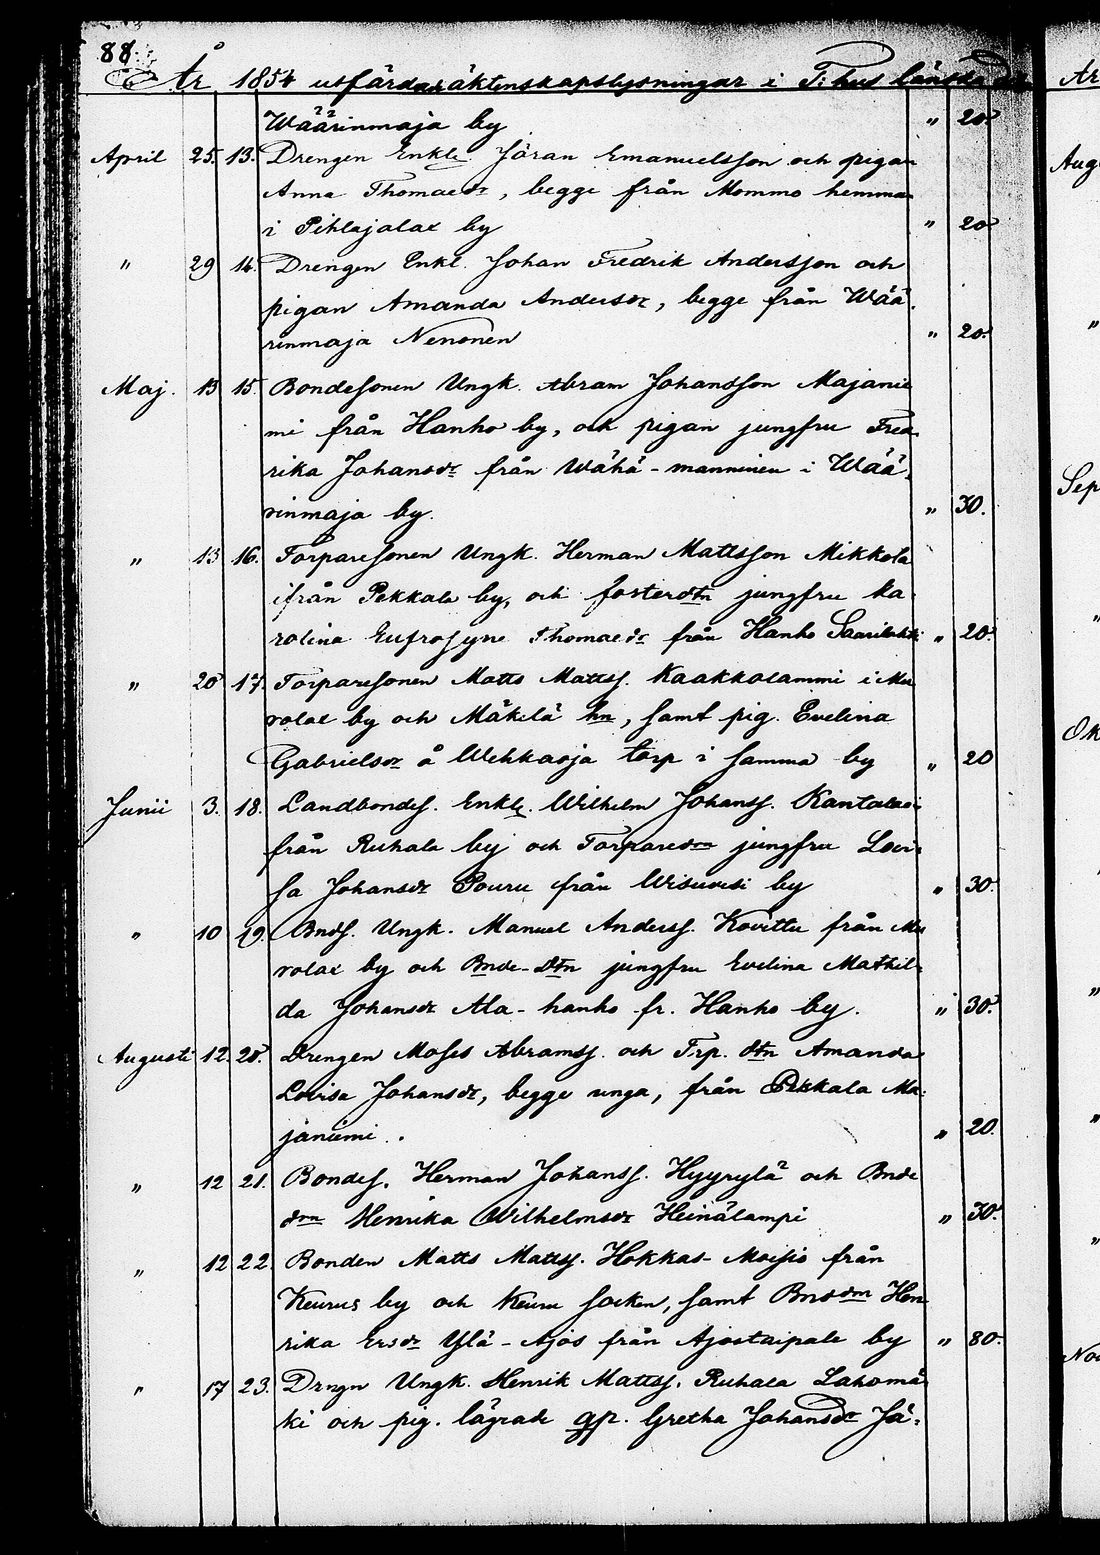 88.
År 1854 utfärdar äktenskapslysningar i
Wäärinmaja by " 20.
April 25. 13. Drengen Enkl. Jöran Emanuelsson och pigan
Anna Thomaedr, begge från Mommo hemma
i Pihlajalax by " 20
" 29 14. Drengen Enkl. Johan Fredrik Andersson och
pigan Amanda Andersdr, begge från Wää
rinmaja Nenonen " 20.
Maj. 13 15. Bondesonen Ungk. Abram Johansson Majanie
mi från Hanho by, och pigan jungfru Fred
rika Johansdr från Wähä-manninen i Wää
rinmaja by. " 30.
" 13 16. Torparesonen Ungk. Herman Mattsson Mikkola
ifrån Pekkala by, och fosterdtn jungfru Ka-
rolina Eufrosyne Thomaedr från Hanho Saarilahti " 20.
" 20 17. Torparesonen Matts Matts. Kaakkolammi i Mu
rolax by och Mäkelä hn, samt pig. Evelina
Gabrielsdr å Wehkaoja torp i samma by " 20
Junii 3. 18. Landbondes. Enkl. Wilhelm Johanss.
från Ruhala by och Torparedrn jungfru Lovi-
sa Johansdr Pouru från Wisuvesi by " 30.
" 10 19. Bnds. Ungk. Manuel Anderss. Kovittu från Mu
rolax by och Bnde-dtn jungfru Evelina Mathil-
da Johansdr Ala-hanho fr. Hanho by. " 30.
Augusti 12. 20. Drengen Moses Abramss. och Trp. dtn Amanda
Lovisa Johansdr, begge unga, från Pekkala Ma-
janiemi. " 20.
" 12 21. Bondes. Herman Johanss. Hyyrylä och Bnde
drn Henrika Wilhelmsdr Heinälampi " 30.
" 12 22. Bonden Matts Matts. Hokkas-Moisio från
Keurus by och Keuru socken, samt Bndedrn Hen
rika Ersdr Ylä-Ajos från Ajostaipale by " 80.
" 17 23. Drngn Ungk. Henrik Matts. Ruhala Lahomä
ki och pig. lägrade qp. Gretha Johansdr Jä-
År
Aug
"
Sep
"
Ok
"
"
"
Nov